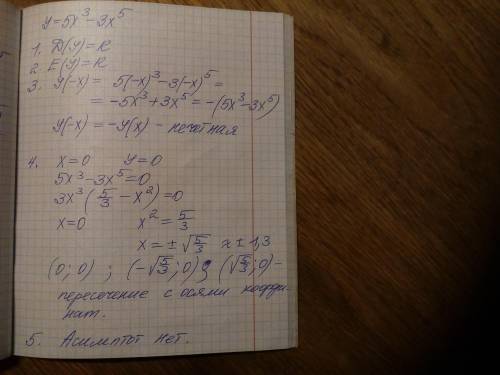 y=5x³-3x⁵
1. D(y)=R
2 E(y)=R
3. y(-x)= 5(-x)³-3(-x)⁵=
= -5x³+3x⁵=-(5x³-3x⁵)
y(-x)=-y(x) - нечетная
4. x=0 y=0
5x³-3x⁵=0
3x³(5/3-x²)=0
x=0 x²=5/3
x=±√5/3 ≈±1,3
(0;0); (-√5/3;0); (√5/3;0)-
пересечение с осями коорди-
нат.
5. Асимптот нет.